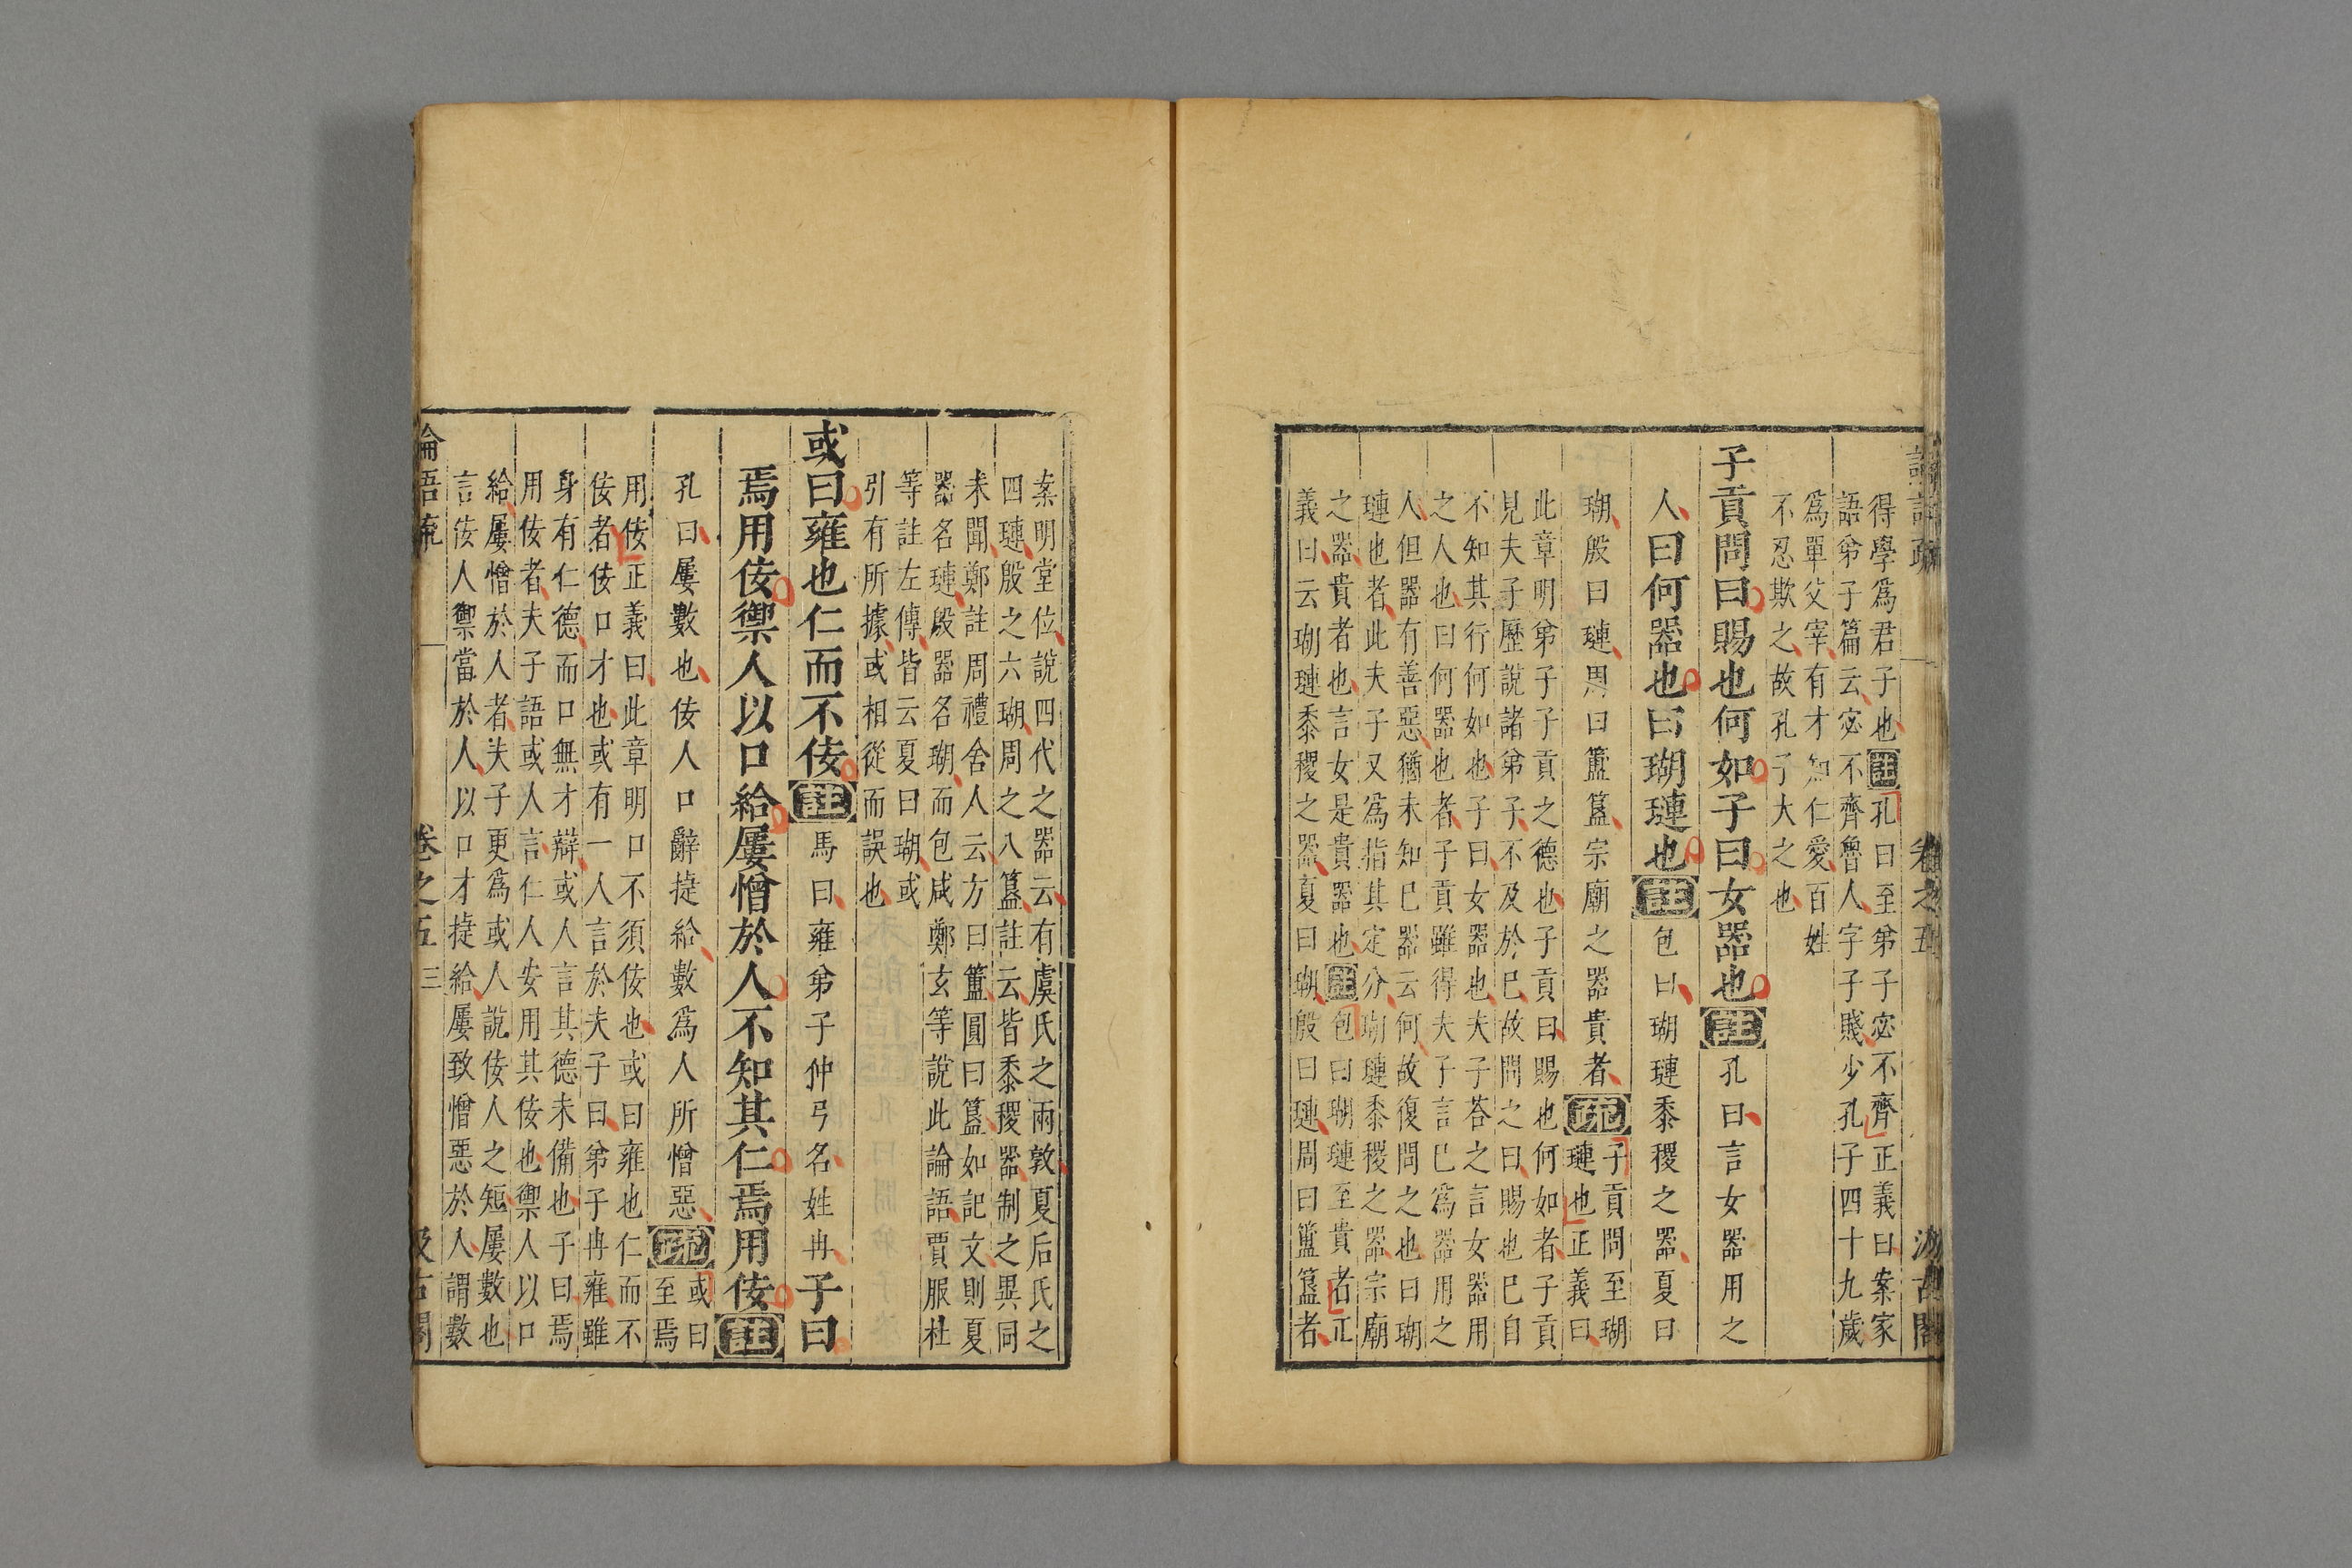 論語疏 卷之五 汲古閣
得學爲君子也註孔曰至弟子宓不齊正義曰案家
語弟子篇云宓不齊魯人字子賤少孔子四十九歲
爲單父宰有才知仁愛百姓
不忍欺之故孔子大之也
子貢問曰賜也何如子曰女器也註孔曰言女器用之
人曰何器也曰瑚璉也註包曰瑚璉黍稷之器夏曰
瑚殷曰璉周曰簠簋宗廟之器貴者疏子貢問至瑚
璉也正義曰
此章明弟子子貢之德也子貢曰賜也何如者子貢
見夫子歷說諸弟子不及於己故問之曰賜也己自
不知其行何如也子曰女器也夫子荅之言女器用
之人也曰何器也者子貢雖得夫子言己爲器用之
人但器有善惡猶未知己器云何故復問之也曰瑚
璉也者此夫子又爲指其定分瑚璉黍稷之器宗廟
之器貴者也言女是貴器也註包曰瑚璉至貴者正
義曰云瑚璉黍稷之器夏曰瑚殷曰璉周曰簠簋者
案明堂位說四代之器云有虞氏之兩敦夏后氏之
四璉殷之六瑚周之八簋註云皆黍稷器制之異同
未聞鄭註周禮舍人云方曰簠圓曰簋如記文則夏
器名璉殷器名瑚而包咸鄭玄等說此論語賈服杜
等註左傳皆云夏曰瑚或
引有所據或相從而誤也
或曰雍也仁而不佞註馬曰雍弟子仲弓名姓冉子曰
焉用佞禦人以口給屢憎於人不知其仁焉用佞註
孔曰屢數也佞人口辭捷給數爲人所憎惡疏或曰
至焉
用佞正義曰此章明口不須佞也或曰雍也仁而不
佞者佞口才也或有一人言於夫子曰弟子冉雍雖
身有仁德而口無才辯或人言其德未備也子曰焉
用佞者夫子語或人言仁人安用其佞也禦人以口
給屢憎於人者夫子更爲或人說佞人之短屢數也
言佞人禦當於人以口才捷給屢致憎惡於人謂數
論語疏 卷之五 三 汲古閣